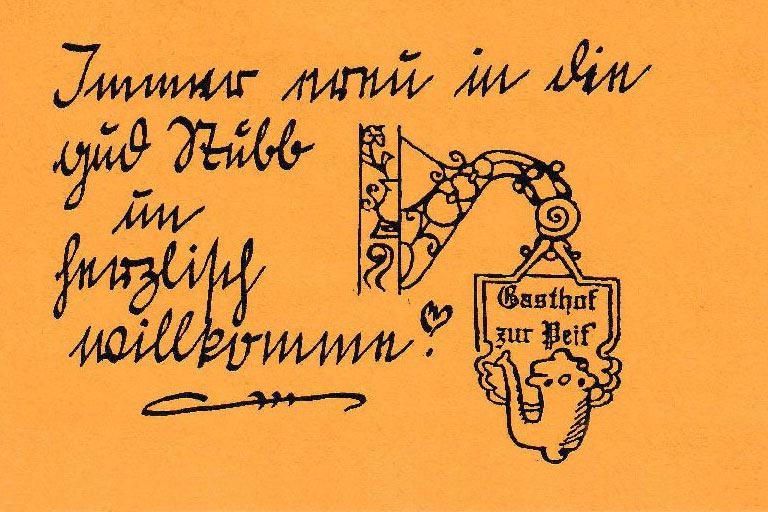 Immer ereu in die
gud Stubb
un
herzlisch
willkomme!
Gasthof
zur Peif